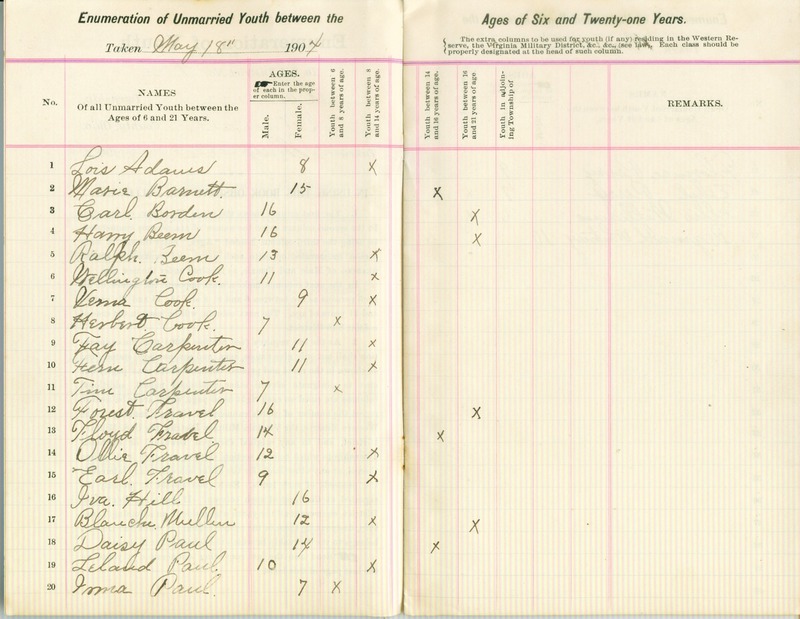 Enumeration of Unmarried Youth between the Ages of Six and Twenty-one Years.
Taken May 18" 1904
The extra columns to be used for youth (if any) residing in the Western Re-
serve, the Virginia Military District, &c., &c., (see law). Each class should be
properly designated at the head of such column.
No.
NAMES
Of all Unmarried Youth between the
Ages of 6 and 21 Years.
AGES.
Enter the age
of each in the prop-
er column.
Male.
Female.
Youth between 6
and 8 years of age.
Youth between 8
and 14 years of age.
Youth between 14
and 16 years of age.
Youth between 16
and 21 years of age.
Youth in adjoin-
ing Township of
REMARKS.
1 Lois Adams 8 X
2 Marie Barnett 15 X
3 Earl Borden 16 X
4 Harry Beem 16 X
5 Ralph. Beem 13 X
6 Wellington Cook. 11 X
7 Verna Cook. 9 X
8 Herbert Cook. 7 X
9 Fay Carpenter 11 X
10 Fern Carpenter 11 X
11 Tim Carpenter 7 X
12 Forest. Fravel 16 X
13 Floyd Fravel. 14 X
14 Ollie Fravel 12 X
15 Earl. Fravel 9 X
16 Iva. Hill 16
17 Blanche Mullen 12 X X
18 Daisy Paul 14 X
19 Leland Paul. 10 X
20 Irma Paul. 7 X